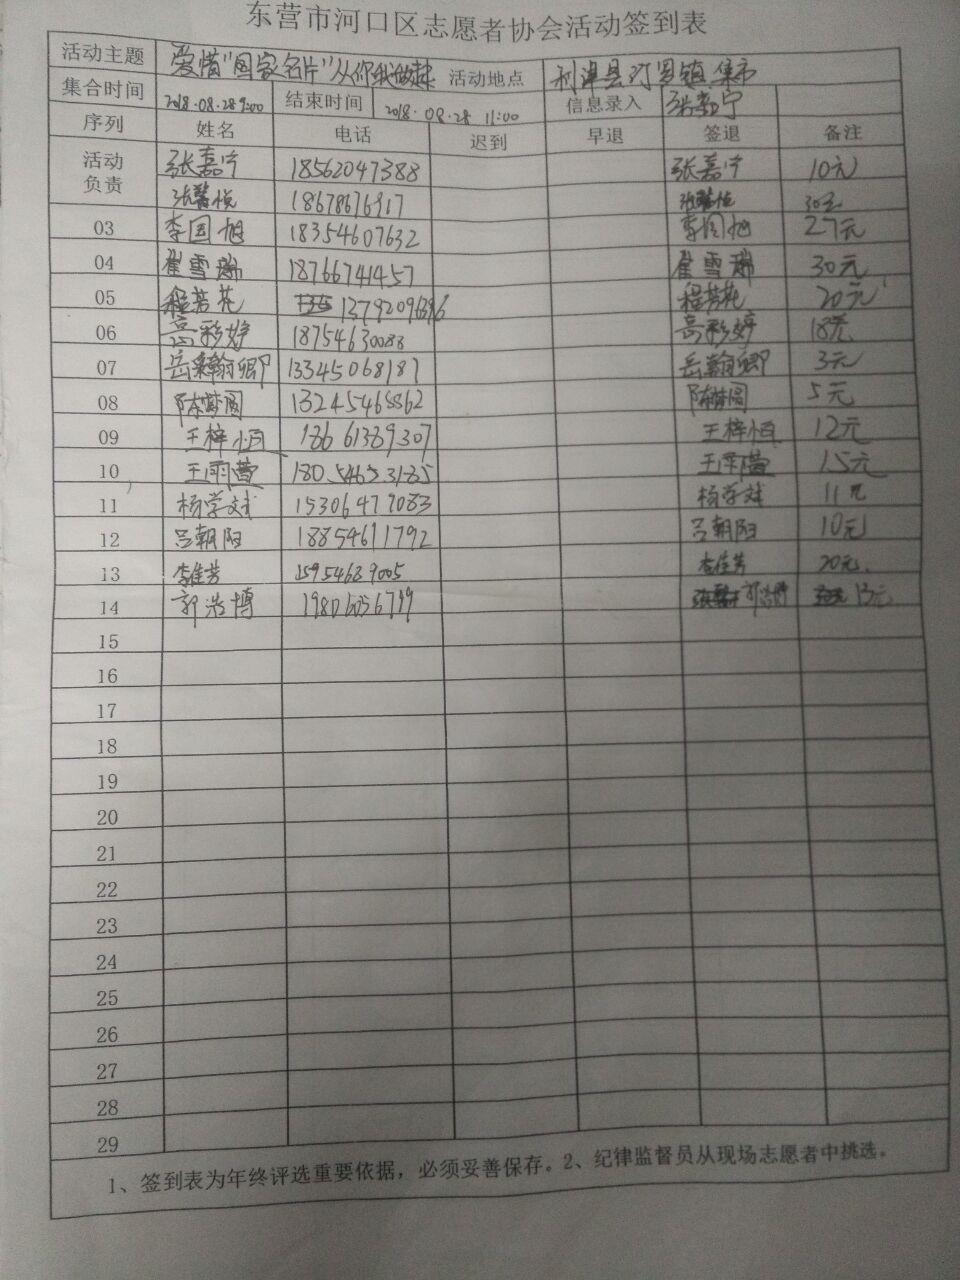 东营市河口区志愿者协会活动签到表
活动主题 爱惜"国家名片"从你我做起 活动地点 利津县汀罗镇集市
集合时间 2018.08.28 9:00 结束时间 2018.08.28 11:00 信息录入 张嘉宁
序列 姓名 电话 迟到 早退 签退 备注
活动负责 张嘉宁 18562047388 张嘉宁 10元
张馨悦 18678676917 张馨悦 30元
03 李国旭 18354607632 李国旭 27元
04 崔雪瑞 18766741457 崔雪瑞 30元
05 程芳花 程芳花 20元
06 高彩婷 18754630088 高彩婷 18元
07 岳翰卿 13345068187 岳翰卿 3元
08 陈梦圆 13245468862 陈梦圆 5元
09 王梓恒 18661389307 王梓恒 12元
10 王雨萱 18054653185 王雨萱 15元
11 杨学斌 15306479083 杨学斌 11元
12 吕朝阳 18854611792 吕朝阳 10元
13 李佳芳 15954689005 李佳芳 20元.
14 郭浩博 郭浩博 13元
15
16
17
18
19
20
21
22
23
24
25
26
27
28
29
1、签到表为年终评选重要依据，必须妥善保存。2、纪律监督员从现场志愿者中挑选。